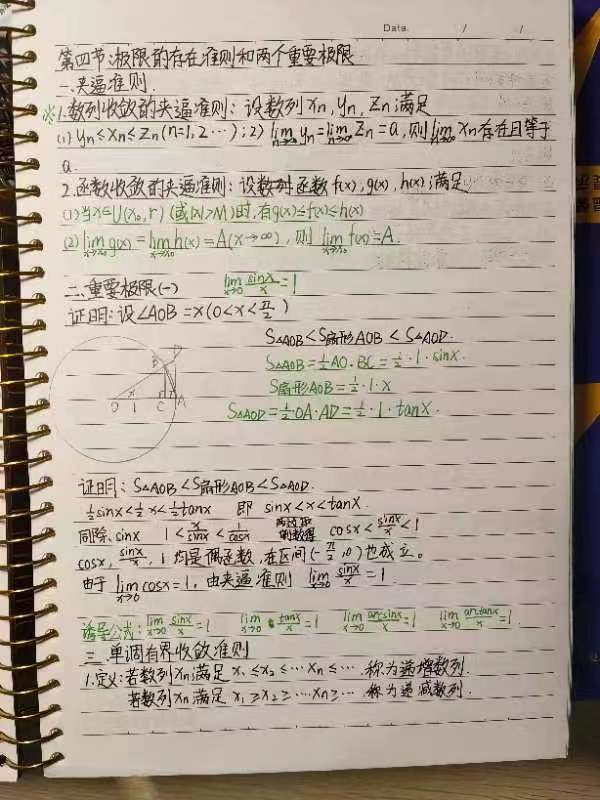 Data / /
第四节:极限的存在准则和两个重要极限
一、夹逼准则.
※1.数列收敛的夹逼准则:设数列 xn, yn, zn 满足
(1) yn≤xn≤zn (n=1,2…);2) lim n→∞ yn=lim n→∞ zn=a,则 lim n→∞ xn 存在且等于
a.
2.函数收敛的夹逼准则:设数列函数 f(x), g(x), h(x) 满足
(1)当x∈U(x₀,r) (或|x|>M)时,有g(x)≤f(x)≤h(x)
(2) lim x→x₀ g(x)=lim x→x₀ h(x)=A(x→∞),则 lim x→x₀ f(x)=A.
二、重要极限(一) lim x→0 sinx/x=1
证明:设∠AOB=x(0<x<π/2)
S△AOB<S扇形AOB<S△AOD.
S△AOB=½AO·BC=½·1·sinx.
S扇形AOB=½·1·x
S△AOD=½OA·AD=½·1·tanx.
D
B
O x 1 C A
证明:S△AOB<S扇形AOB<S△AOD.
½sinx<½x<½tanx 即 sinx<x<tanx.
同除sinx 1<x/sinx<1/cosx cosx<sinx/x<1
cosx, sinx/x, 1均是偶函数,在区间(-π/2,0)也成立。
由于 lim x→0 cosx=1,由夹逼准则 lim x→0 sinx/x=1.
公式: lim x→0 sinx/x=1 lim x→0 tanx/x=1 lim x→0 arcsinx/x=1 lim x→0 arctanx/x=1.
三.单调有界收敛准则
1.定义:若数列xn满足 x₁≤x₂≤…xn≤… 称为递增数列.
若数列xn满足 x₁≥x₂≥…xn≥… 称为递减数列.